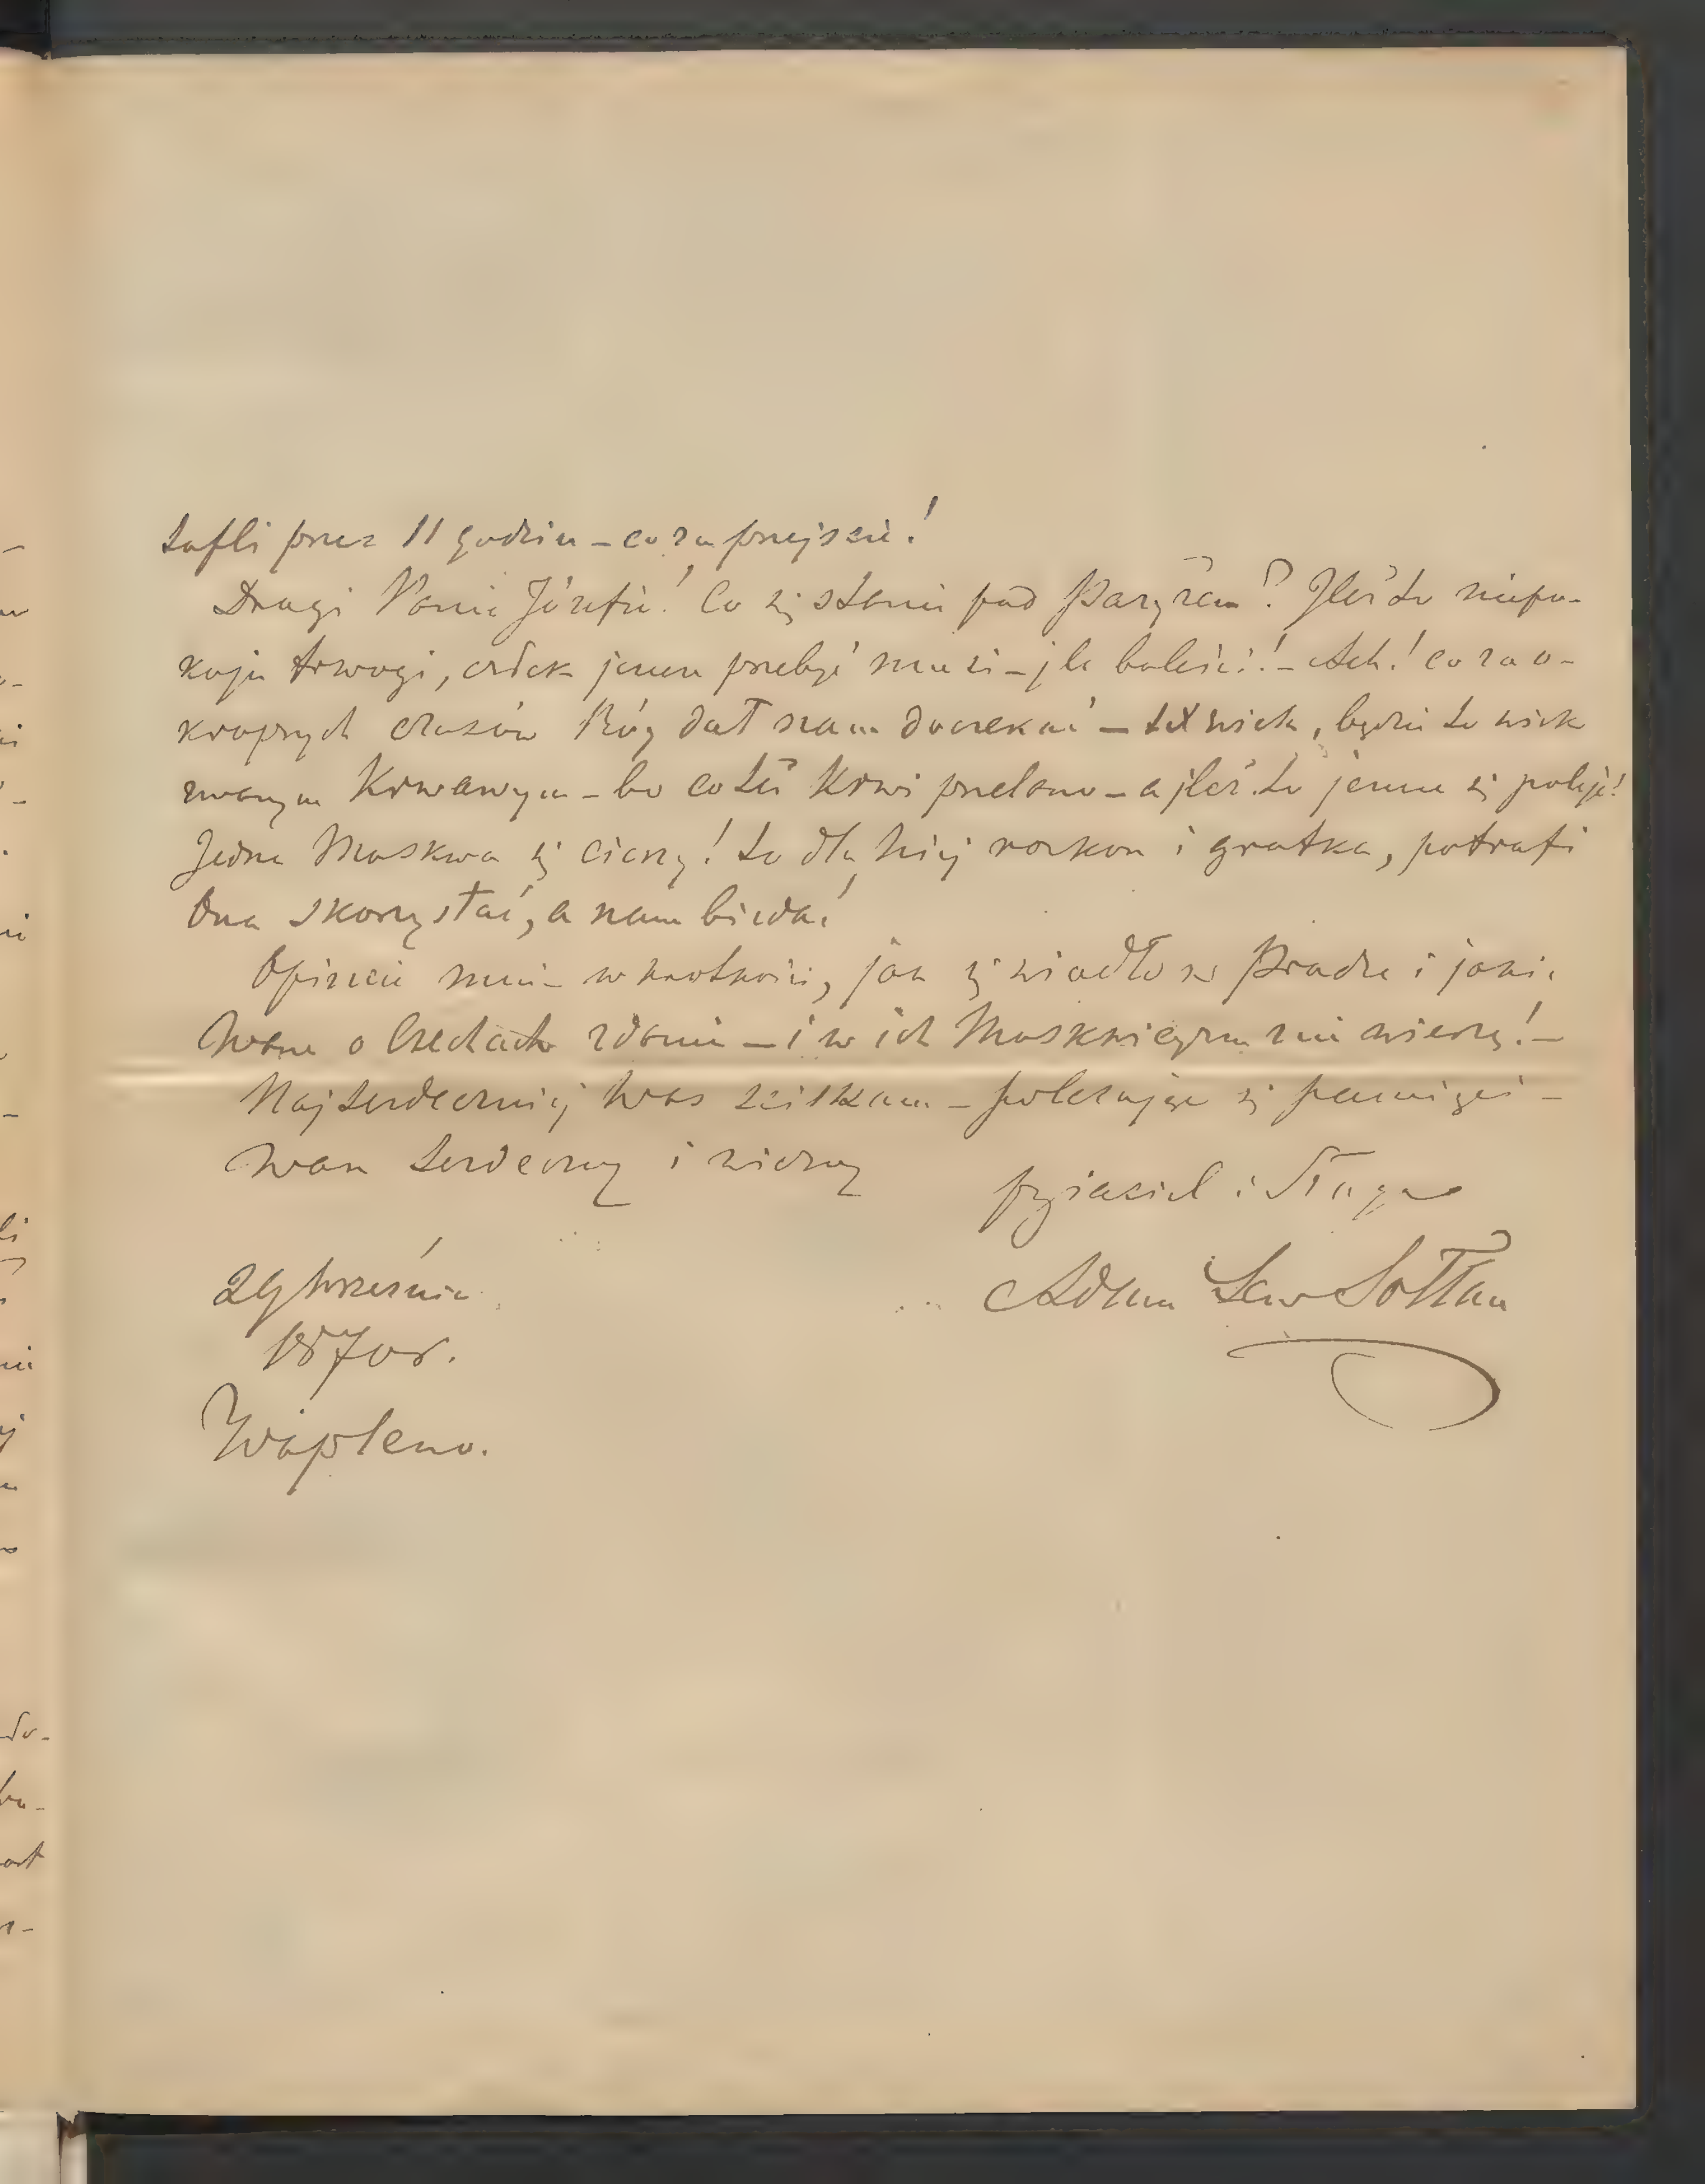 trafili przez 11 godzin – co za przejście!
Drogi Panie Józefie! Co się stanie pod Paryżem? Ileż to niepo-
koju trwogi, człek jeszcze przebyć musi – ile boleści! – Ach! co za o-
kropnych czasów Bóg dał nam doczekać – XIX wiek, będzie to wiek
zwanym Krwawym – bo coteż Krwi przelano – a ileż to jeszcze się poleje!
Jedna Moskwa się cieszy! to dla niej rozkosz i gratka, potrafi
Ona skorzystać, a nam bieda!
Opiszcie mnie w krótkości, jak się wiodło w Pradze i jakie
Wasze o Czechach zdanie – i w ich Moskwicyzm nie wierzę! –
Najserdeczniej Was ściskam – polecając się pamięci –
Wasz serdeczny i wierny
przyjaciel i sługa
Adam Lew Sołtan
29 Września
1870 r.
Waplewo.